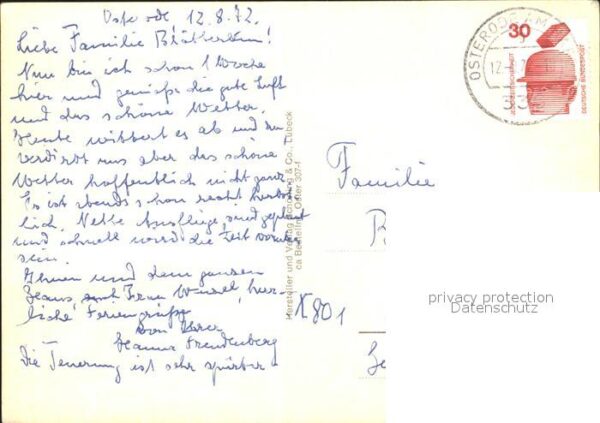 Osterode, 12.8.72.
Liebe Familie Blätterbaum!
Nun bin ich schon 1 Woche
hier und genieße die gute Luft
und das schöne Wetter.
Heute wittert es ab und zu
verdirbt uns aber das schöne
Wetter hoffentlich nicht ganz.
Es ist abends schon recht herbst-
lich. Nette Ausflüge sind geplant
und schnell wird die Zeit vorüber
sein.
Ihnen und dem ganzen
Haus, auch Frau Wenzel, herz-
liche Feriengrüße
von Ihrer
Hanna Freudenberg
Die Teuerung ist sehr spürbar
Hersteller und Verlag Schöning & Co., Lübeck
Oster 307-1
X801
Familie
B
OSTERODE AM
12.-
33
30
JUGENDSICHERHEIT
DEUTSCHE BUNDESPOST
privacy protection
Datenschutz